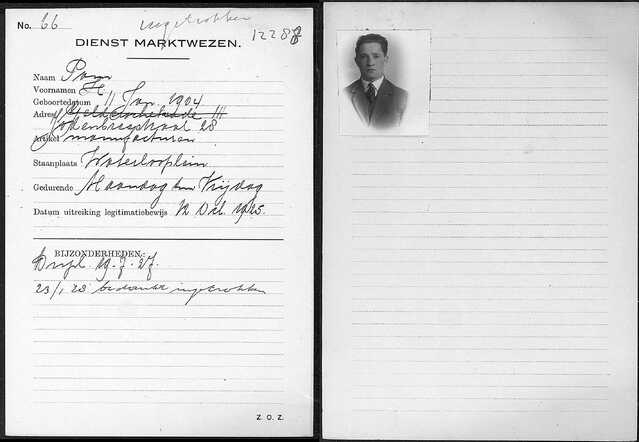 No. 66 ingetrokken 12287
DIENST MARKTWEZEN.
Naam Pam
Voornamen H.
Geboortedatum 11 Jan. 1904
Adres III
Jodenbreestraat 28
Artikel manufacturen
Staanplaats Waterlooplein
Gedurende Maandag t/m Vrijdag
Datum uitreiking legitimatiebewijs 12 Dec. 1925.
BIJZONDERHEDEN:
Dupl. 19.7.27.
23/1 28 bedankt ingetrokken
Z. O. Z.